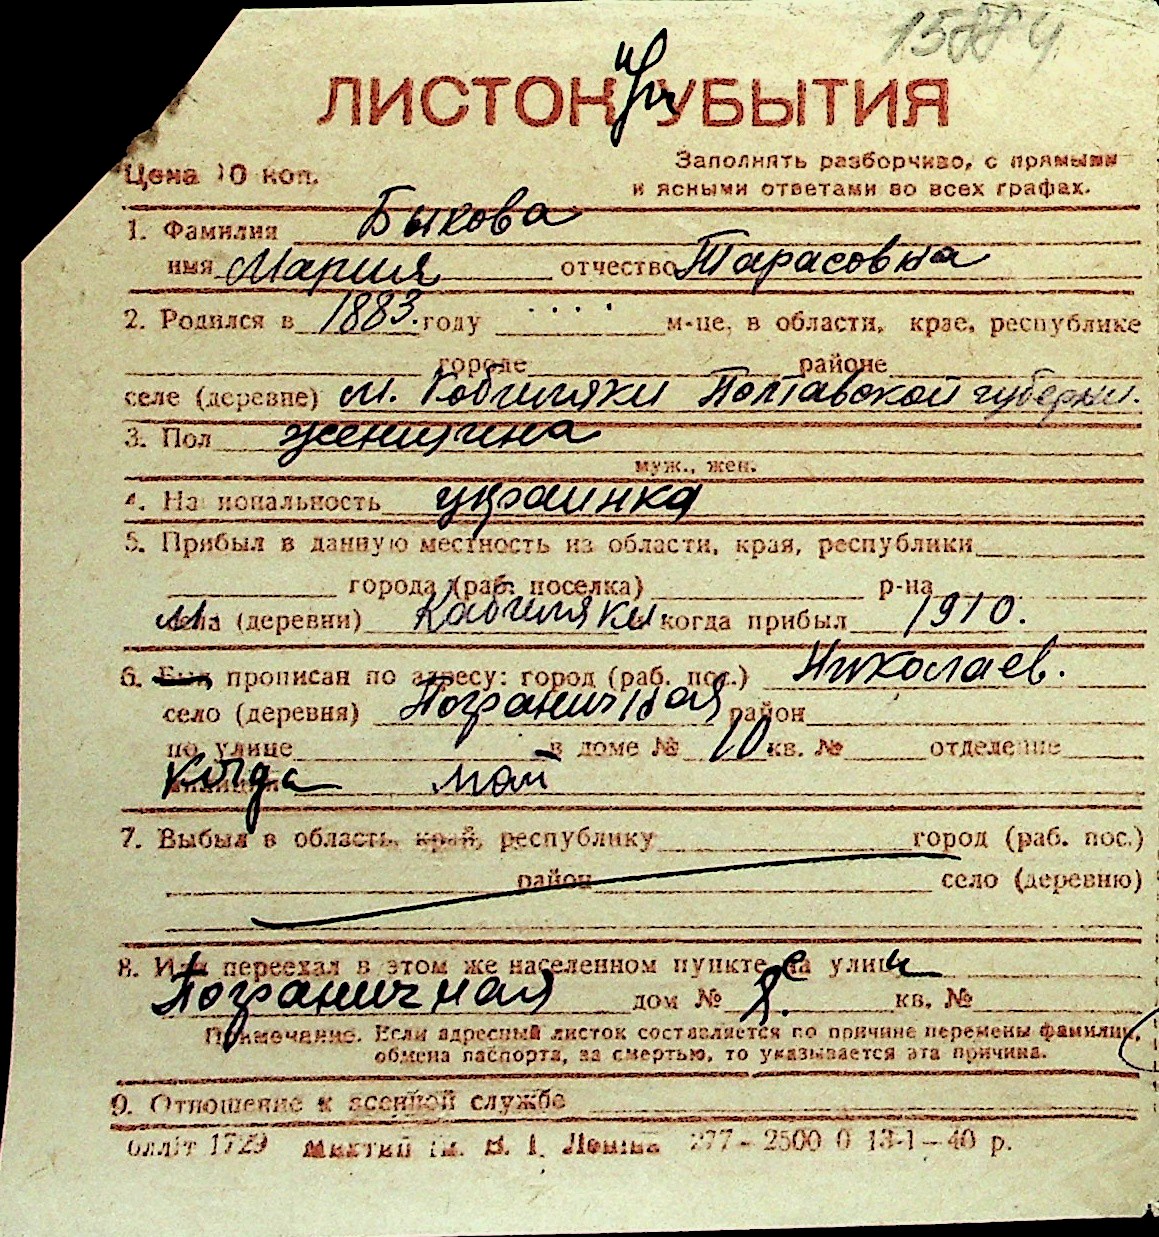 ЛИСТОК УБЫТИЯ
Цена 10 коп.
Заполнять разборчиво, с прямыми
и ясными ответами во всех графах.
1. Фамилия Быкова
имя Мария отчество Тарасовна
2. Родился в 1883. году м-це, в области, крае, республике
городе районе
селе (деревне) м. Кобиляки Полтавской губерни.
3. Пол женщина
муж., жен.
4. Национальность украинка
5. Прибыл в данную местность из области, края, республики
города (раб. поселка) р-на
м. села (деревни) Кабиляки когда прибыл 1910.
6. Был прописан по адресу: город (раб. пос.) Николаев.
село (деревня) Пограничная район
по улице в доме № 10 кв. № отделение
Когда май
7. Выбыл в область, край, республику город (раб. пос.)
район село (деревню)
8. Или переехал в этом же населенном пункте на улицу
Пограничная дом № 8. кв. №
Примечание. Если адресный листок составляется по причине перемены фамилии,
обмена паспорта, за смертью, то указывается эта причина.
9. Отношение к военной службе
Облліт 1729 Ім. В. І. Леніна 277 - 2500 0 13-1-40 р.